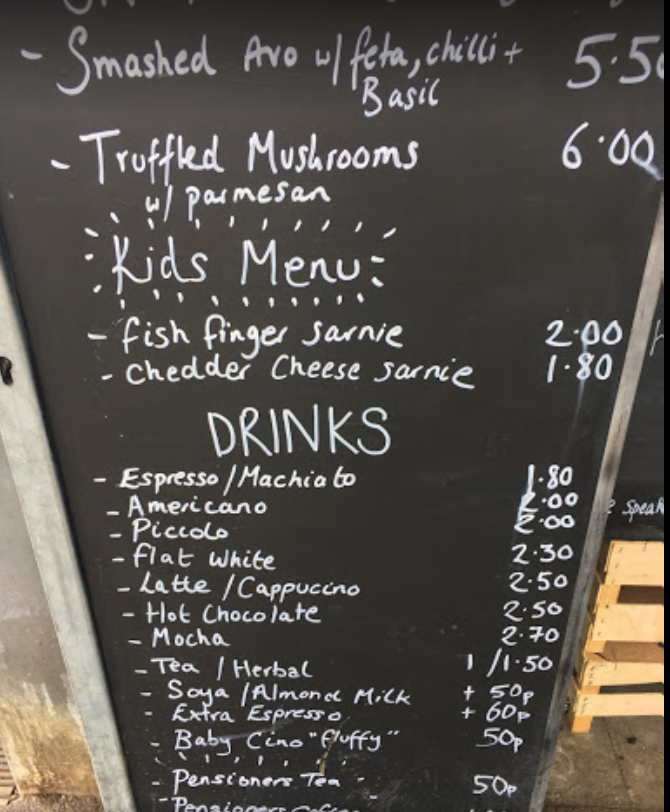 - Smashed Avo w/ feta, chilli + 5.50
Basil
- Truffled Mushrooms 6.00
w/ parmesan
Kids Menu
- fish finger sarnie 2.00
- Chedder Cheese sarnie 1.80
DRINKS
- Espresso/Machiato 1.80
- Americano 2.00
- Piccolo 2.00
- Flat White 2.30
- Latte /Cappuccino 2.50
- Hot Chocolate 2.50
- Mocha 2.70
- Tea / Herbal 1/1.50
- Soya /Almond Milk + 50p
- Extra Espresso + 60p
- Baby Cino "fluffy" 50p
- Pensioners Tea - 50p
- Pensioners